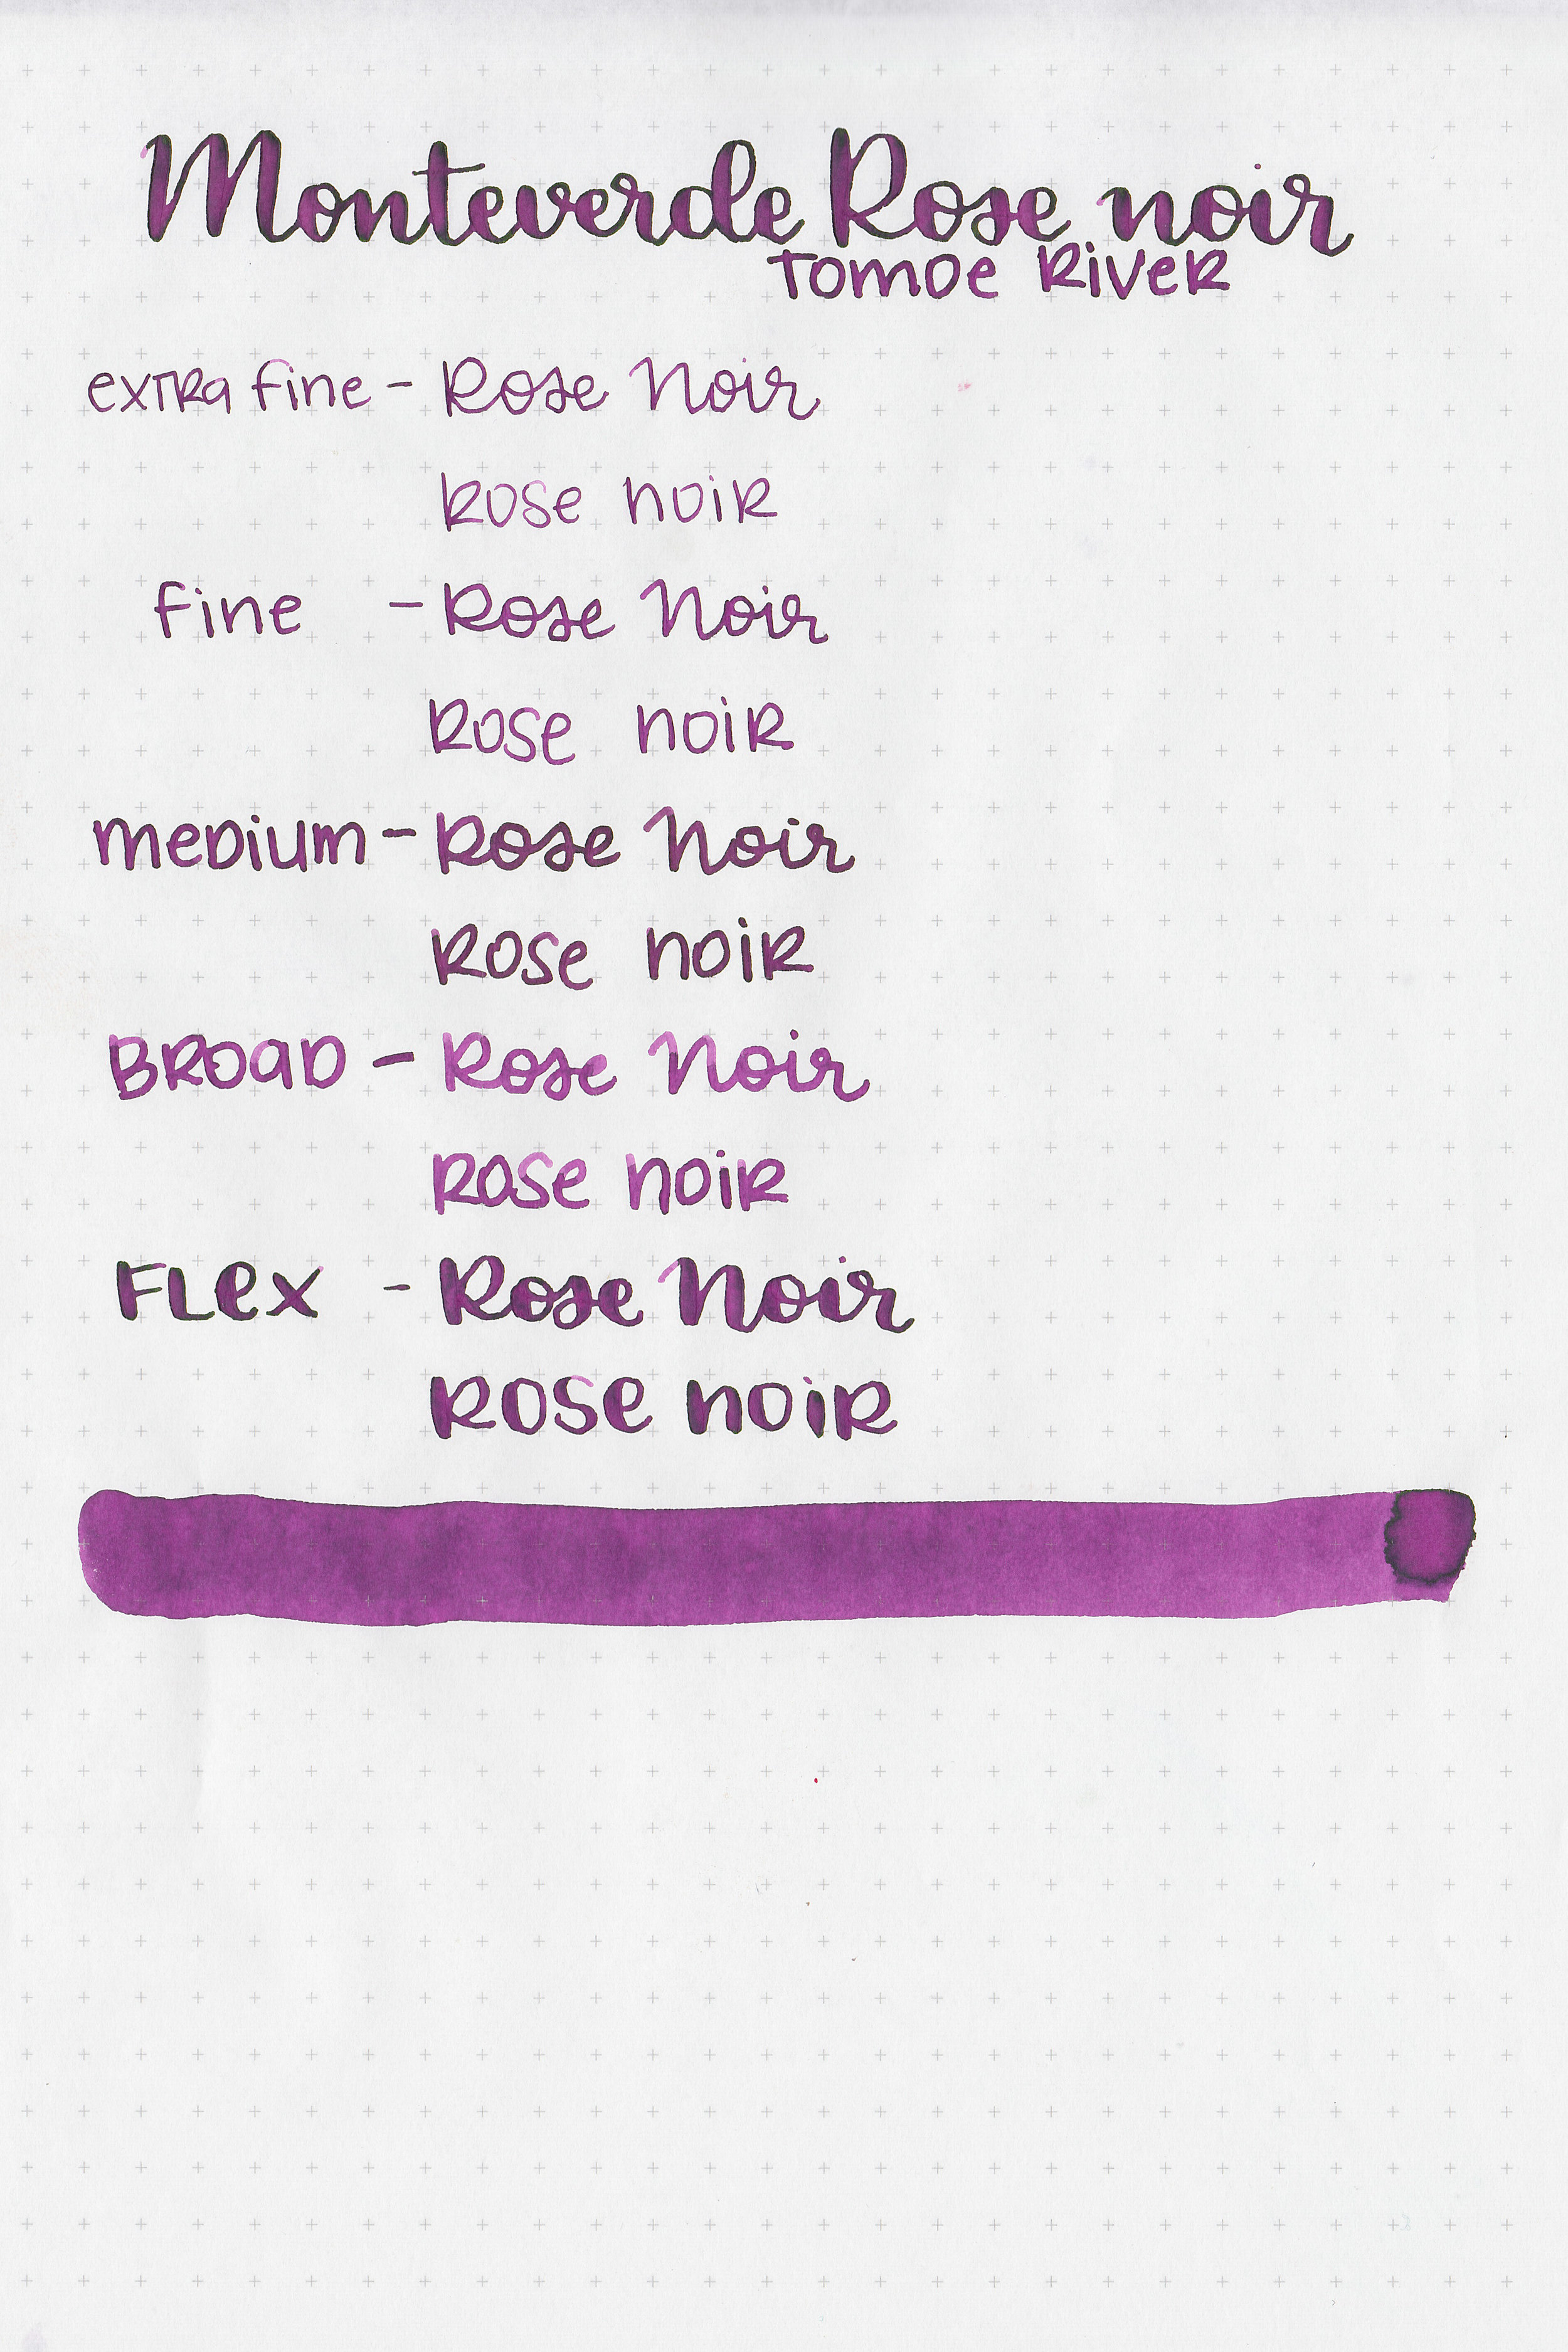 Monteverde Rose noir
Tomoe River
extra fine - Rose Noir
Rose noir
fine - Rose Noir
Rose noir
medium - Rose Noir
Rose noir
Broad - Rose Noir
Rose noir
Flex - Rose Noir
Rose noir